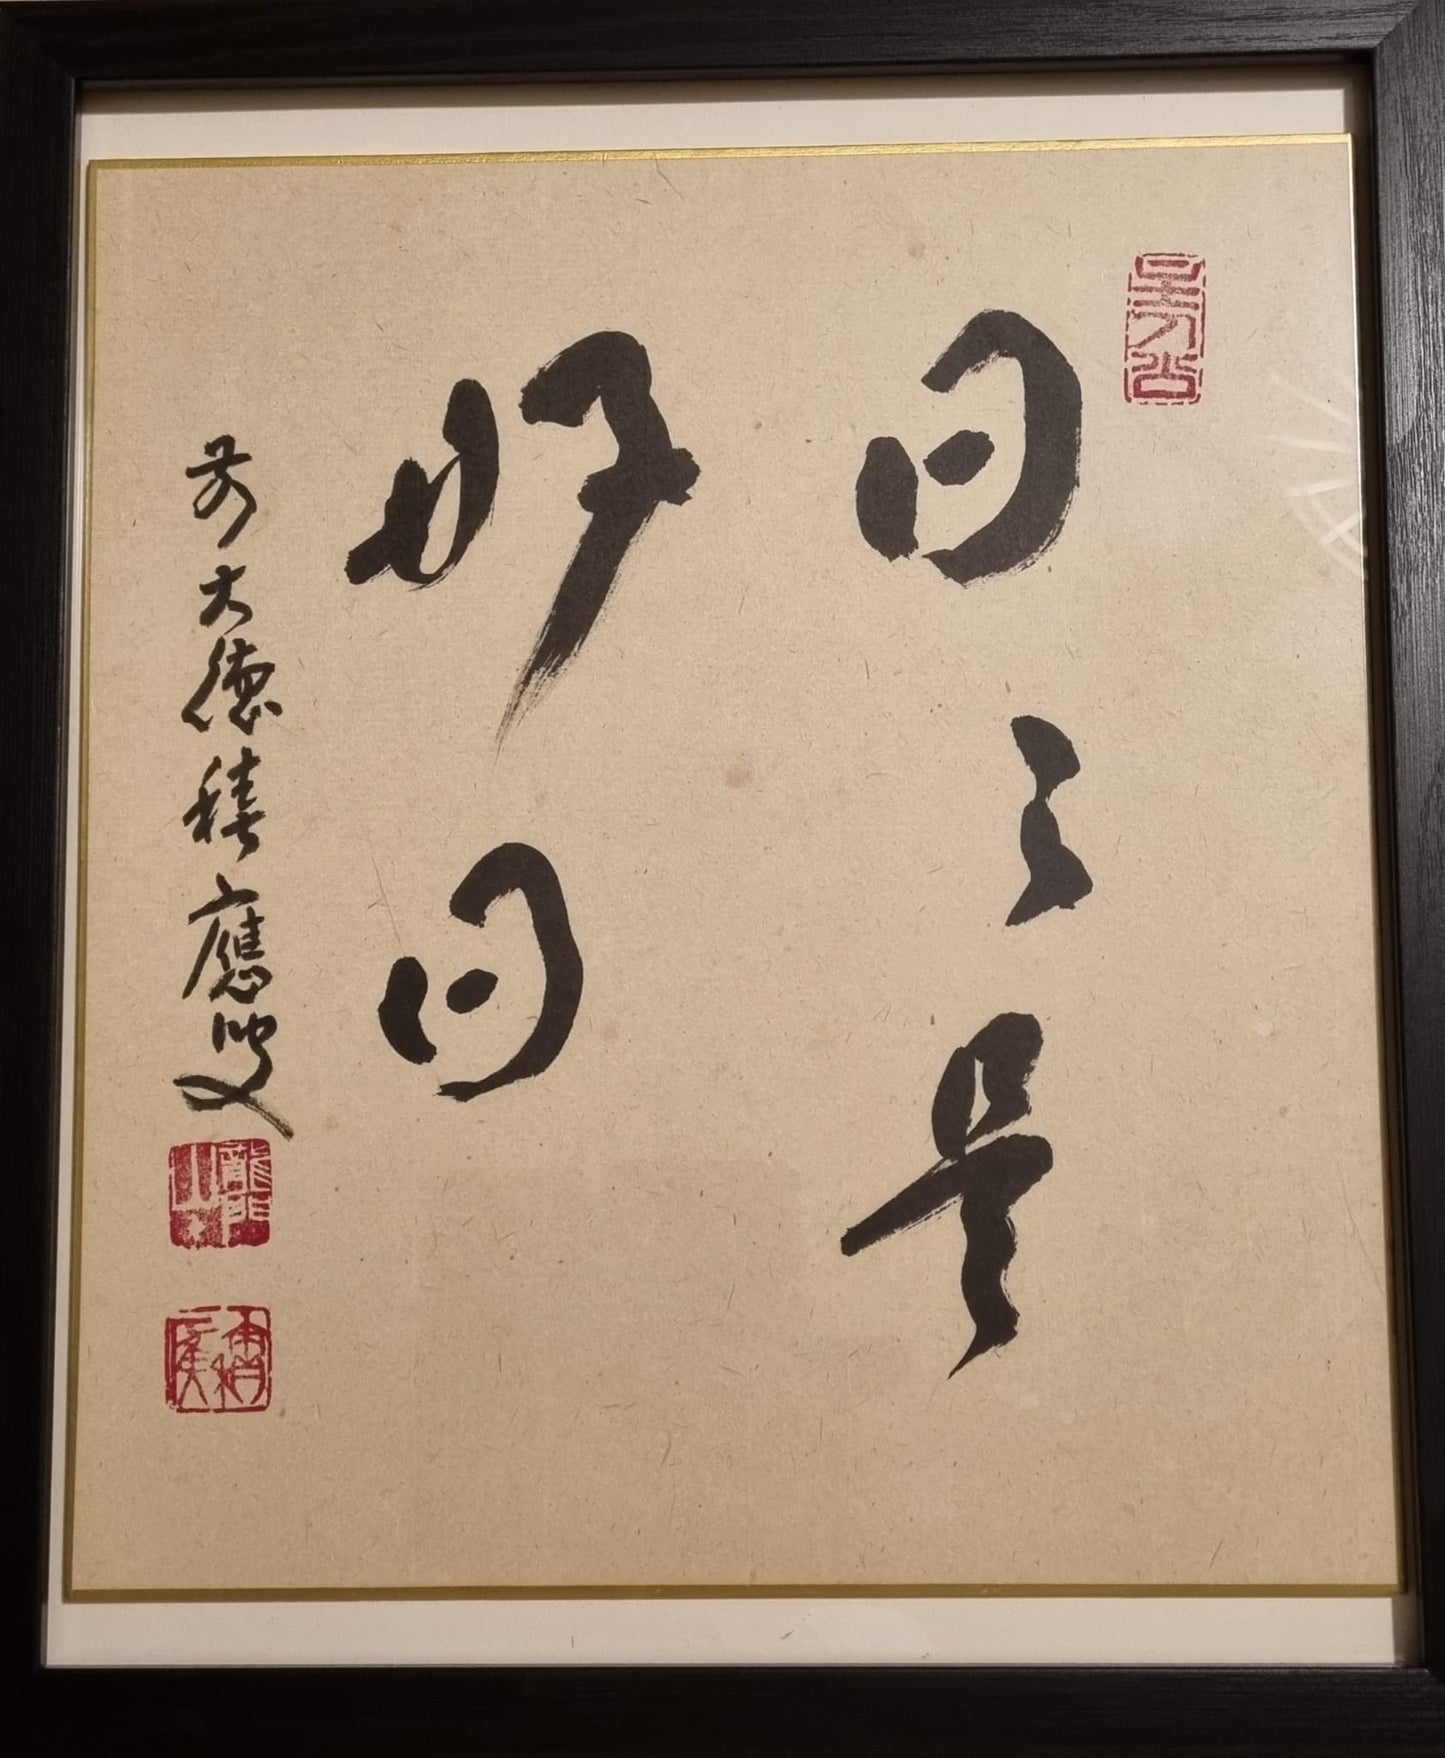 日々是
好日
前大徳積應叟